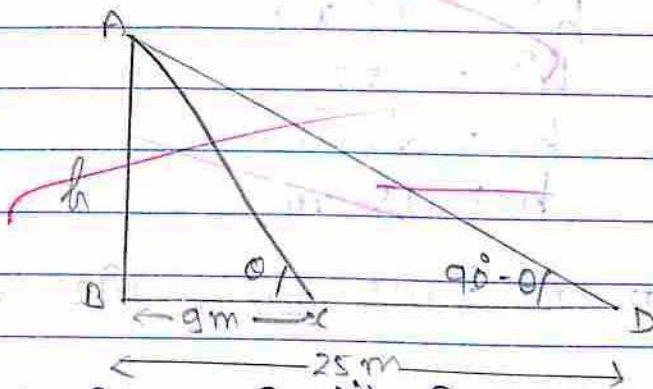 A
h
θ
90°-θ
B
9m
C
D
25m